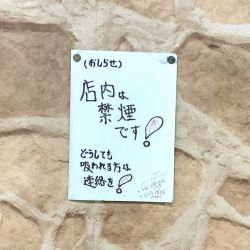 (おしらせ)
店内は
禁煙
です!
どうしても
吸われる方は
連絡を!